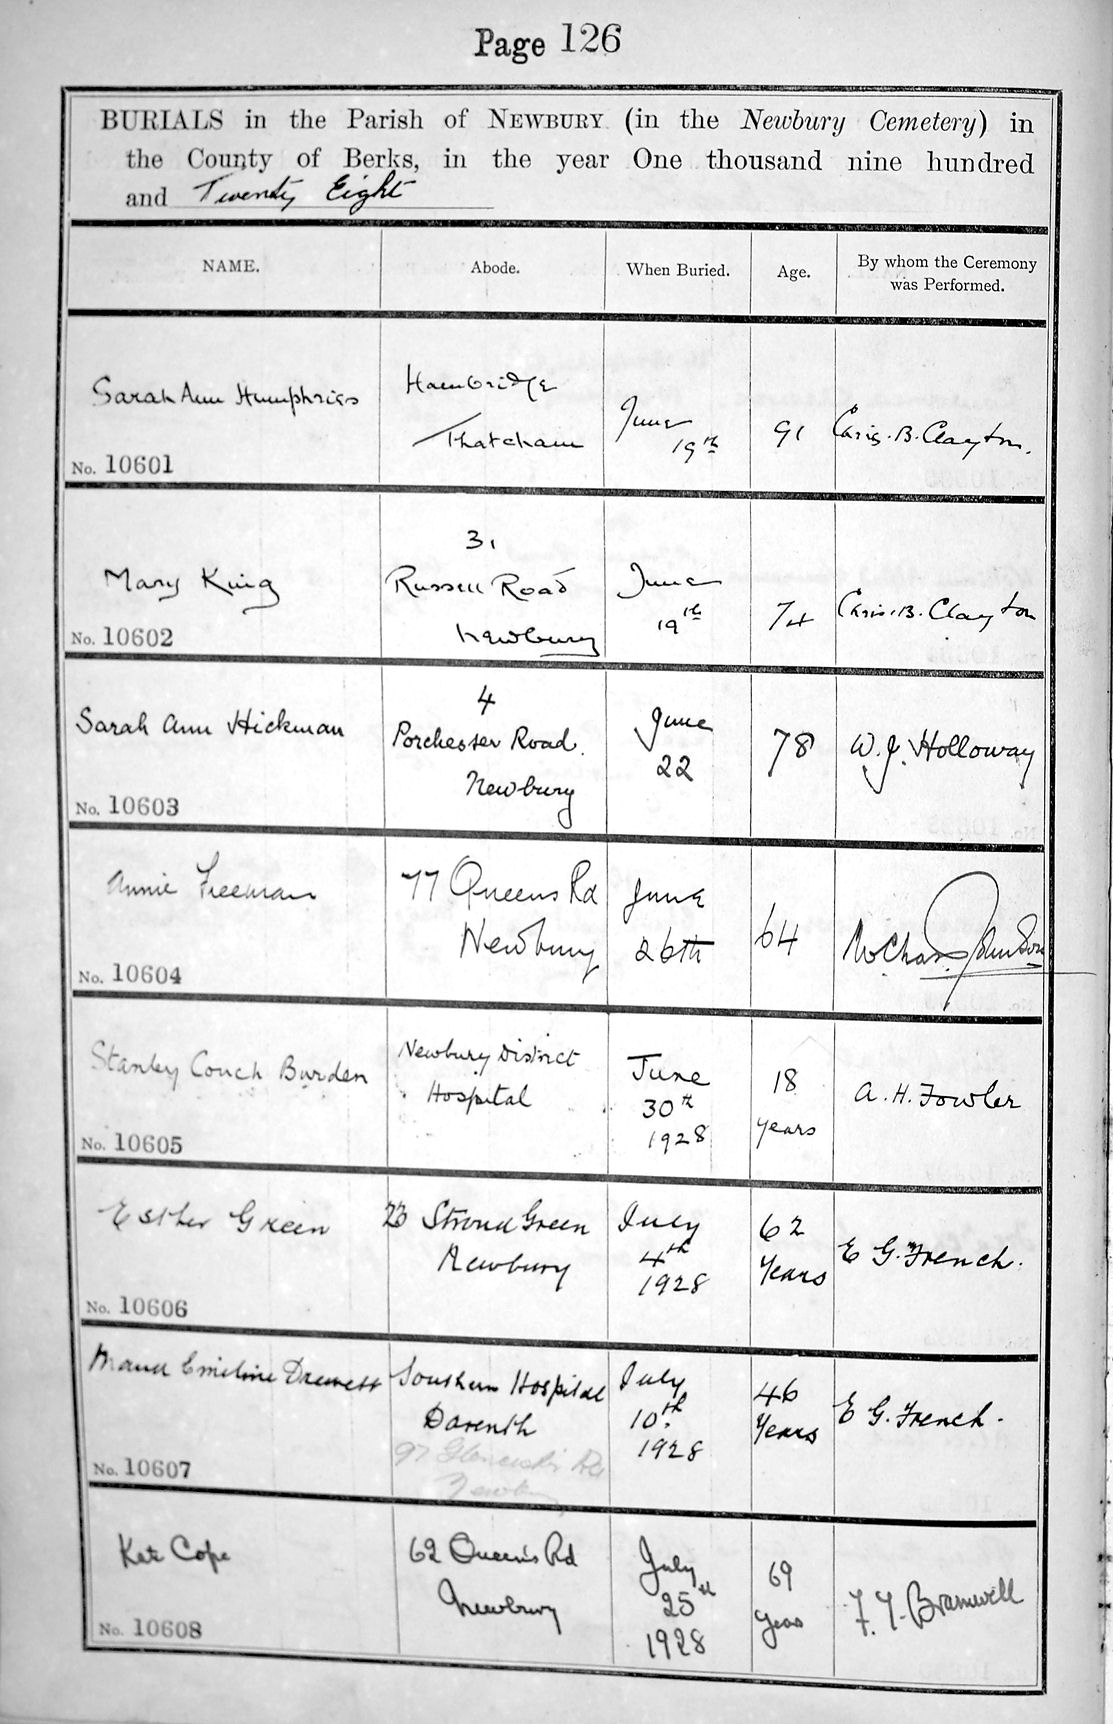 Page 126
BURIALS in the Parish of NEWBURY (in the Newbury Cemetery) in
the County of Berks, in the year One thousand nine hundred
and Twenty Eight
NAME. Abode. When Buried. Age. By whom the Ceremony was Performed.
Sarah Ann Humphries
No. 10601
Hambridge
Thatcham
June
19th
91
Chris. B. Clayton.
Mary King
No. 10602
31
Russell Road
Newbury
June
19th
74
Chris. B. Clayton
Sarah Ann Hickman
No. 10603
4
Porchester Road.
Newbury
June
22
78
W. J. Holloway
Annie Freeman
No. 10604
77 Queens Rd
Newbury
June
26th
64
Johnston
Stanley Couch Burden
No. 10605
Newbury District
Hospital
June
30th
1928
18
years
A. H. Fowler
Esther Green
No. 10606
23 Stroud Green
Newbury
July
4th
1928
62
Years
E G. French.
Maud Emeline Drewett
No. 10607
Southern Hospital
Darenth
97 Rd
Newbury
July
10th
1928
46
Years
E G. French.
Kate Cope
No. 10608
62 Queen's Rd
Newbury
July
25th
1928
69
Years
F. T. Bramwell